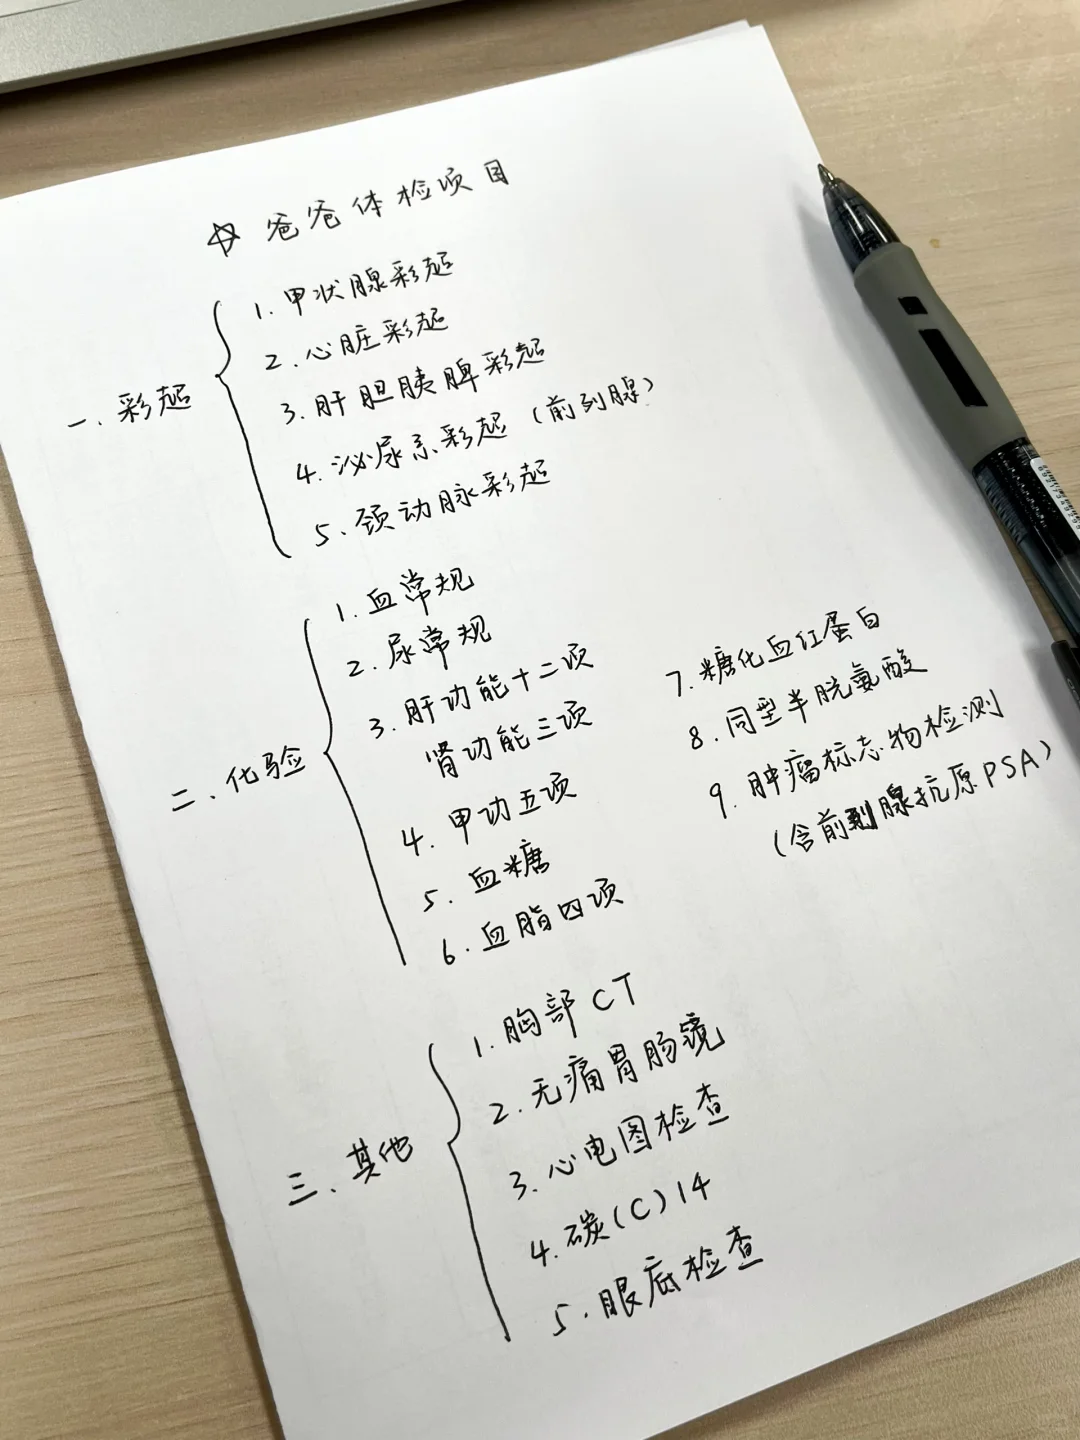 ☆ 爸爸体检项目
一、彩超
1. 甲状腺彩超
2. 心脏彩超
3. 肝胆胰脾彩超
4. 泌尿系彩超（前列腺）
5. 颈动脉彩超
二、化验
1. 血常规
2. 尿常规
3. 肝功能十二项
肾功能三项
4. 甲功五项
5. 血糖
6. 血脂四项
7. 糖化血红蛋白
8. 同型半胱氨酸
9. 肿瘤标志物检测
（含前列腺抗原PSA）
三、其他
1. 胸部CT
2. 无痛胃肠镜
3. 心电图检查
4. 碳(C)14
5. 眼底检查